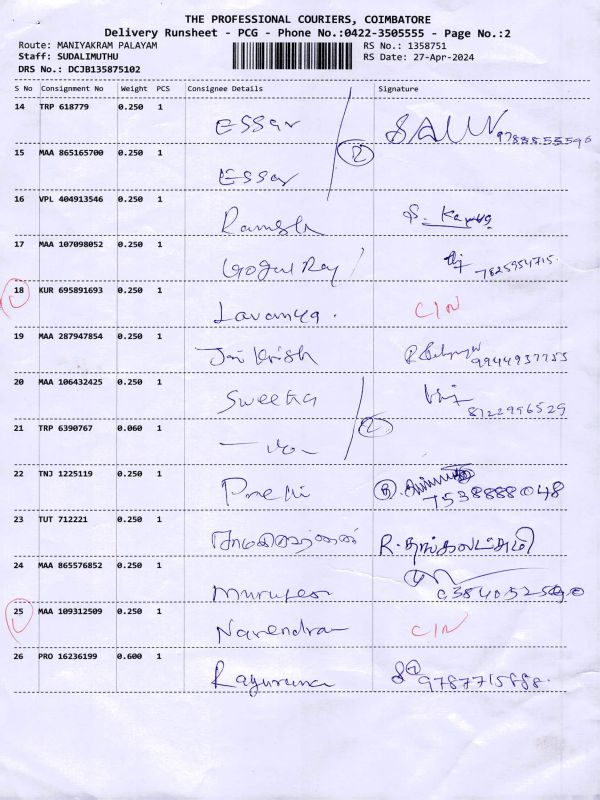 THE PROFESSIONAL COURIERS, COIMBATORE
Delivery Runsheet - PCG - Phone No.:0422-3505555 - Page No.:2
Route: MANIYAKRAM PALAYAM RS No.: 1358751
Staff: SUDALIMUTHU RS Date: 27-Apr-2024
DRS No.: DCJB135875102
S No Consignment No Weight PCS Consignee Details Signature
14 TRP 618779 0.250 1 Essar 9788855596
2
15 MAA 865165700 0.250 1 Essar
16 VPL 404913546 0.250 1 Ramesh
17 MAA 107098052 0.250 1 Gogul Raj 7825954715
18 KUR 695891693 0.250 1 Lavanya. C/N
19 MAA 287947854 0.250 1 Jai Krish 9944937755
20 MAA 106432425 0.250 1 Sweetha 8122996529
2
21 TRP 6390767 0.060 1
22 TNJ 1225119 0.250 1 Preethi 7538888048
23 TUT 712221 0.250 1
24 MAA 865576852 0.250 1 Murugesn
25 MAA 109312509 0.250 1 Narendran C/N
26 PRO 16236199 0.600 1 9787715888.